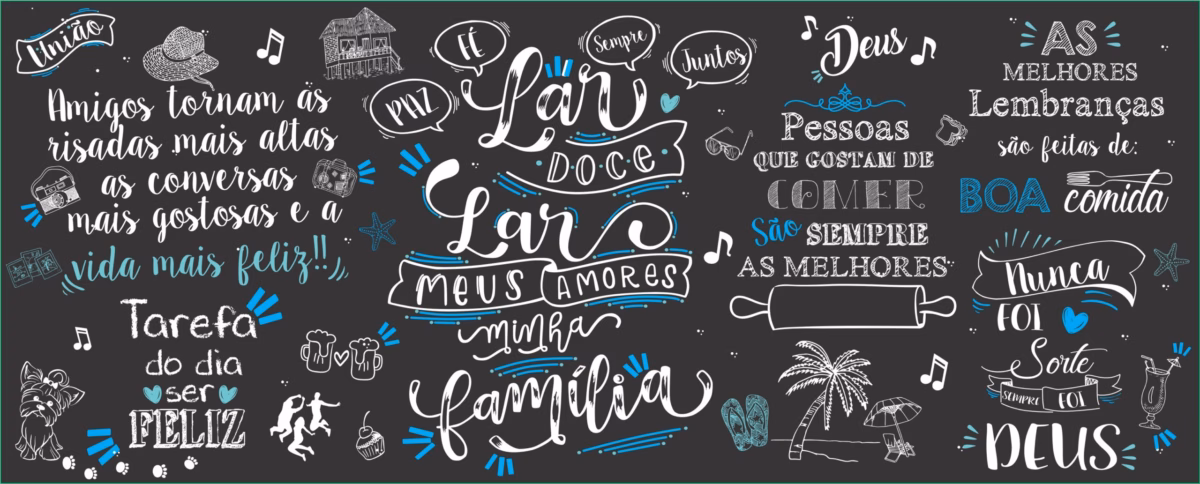 União
Amigos tornam às
risadas mais altas
as conversas
mais gostosas e a
vida mais feliz!!
Tarefa
do dia
ser
FELIZ
FÉ
Sempre
Juntos
PAZ
Lar
DOCE
Lar
MEUS AMORES
minha
família
Deus
Pessoas
QUE GOSTAM DE
COMER
São SEMPRE
AS MELHORES
AS
MELHORES
Lembranças
são feitas de:
BOA comida
Nunca
FOI
Sorte
SEMPRE FOI
DEUS